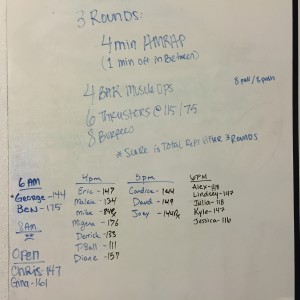 3 Rounds:
4 min AMRAP
(1 min off in Between)
4 BAR Muscle Ups
8 pull / 8 push
6 Thrusters @ 115/75
8 Burpees
* Score is Total Reps After 3 Rounds
6 AM
George - 144
Ben - 175
8am
Open
Chris 147
Gina - 161
4pm
Eric - 147
Malea - 134
Mike -
Miguel - 176
Derrick - 133
T-Ball - 111
Diane - 137
5pm
Candice - 144
David - 149
Joey -
6PM
Alex -
Lindsey - 147
Julia - 118
Kyle - 147
Jessica - 116